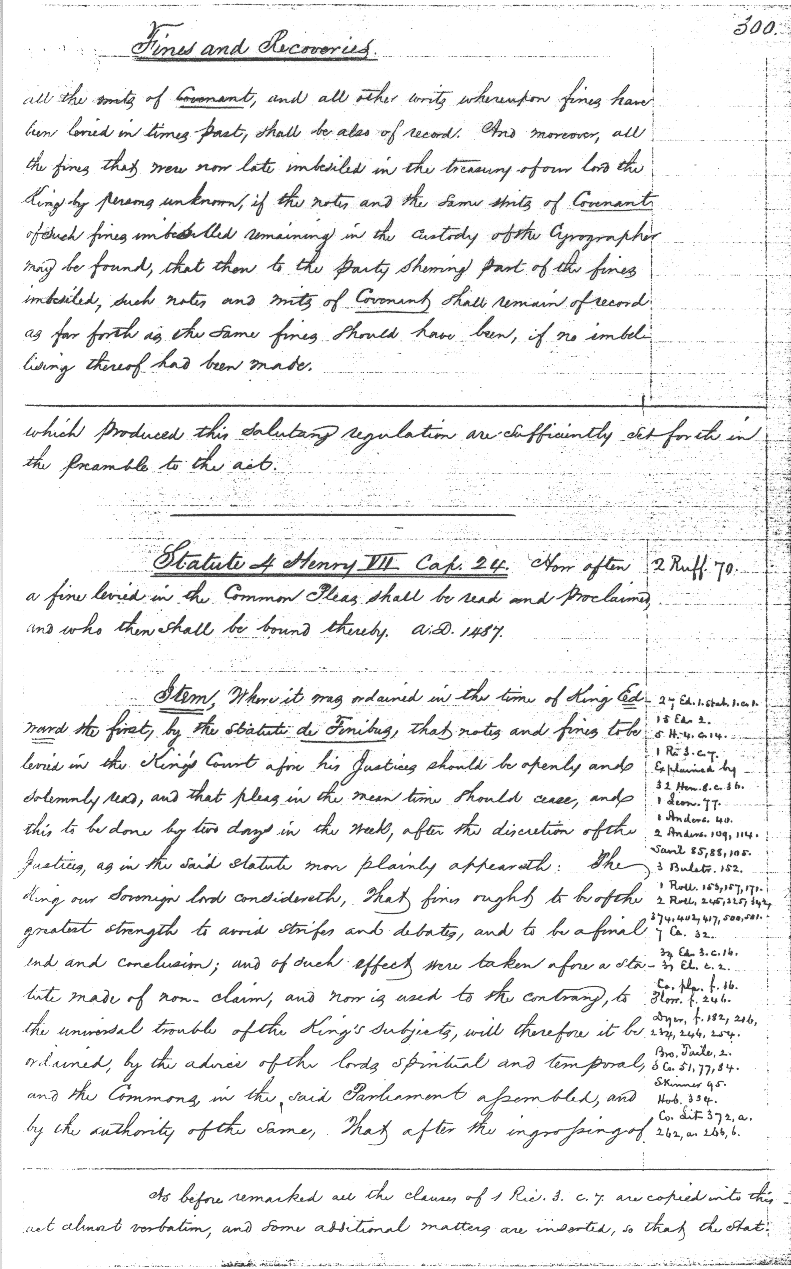 300.
Fines and Recoveries.
all the writs of Covenant, and all other writs whereupon fines have
been levied in times past, shall be also of record. And moreover, all
the fines that were now late imbesiled in the treasury of our lord the
King by persons unknown, if the notes and the same writs of Covenant
of such fines imbesilled remaining in the custody of the Cyrographer
may be found, that then to the party shewing part of the fines
imbesiled, such notes and writs of Covenant shall remain of record
as far forth as the same fines should have been, if no imbei-
lising thereof had been made.
which produced this salutary regulation are sufficiently set forth in
the preamble to the act.
Statute 4 Henry VII Cap. 24. How often
2 Ruff. 70.
a fine levied in the Common Pleas shall be read and proclaimed,
and who then shall be bound thereby. A.D. 1487.
Item, Where it was ordained in the time of King Ed-
ward the first, by the statute de Finibus, that notes and fines to be
levied in the King's Court afore his Justices should be openly and
solemnly read, and that pleas in the mean time should cease, and
this to be done by two days in the week, after the discretion of the
Justices, as in the said statute more plainly appeareth: The
King our Sovereign lord considereth, That fines ought to be of the
greatest strength to avoid strifes and debates, and to be a final
end and conclusion; and of such effect were taken afore a sta-
tute made of non-claim, and now is used to the contrary, to
the universal trouble of the King's subjects, will therefore it be
ordained, by the advice of the lords spiritual and temporal,
and the Commons, in the said Parliament assembled, and
by the authority of the same, That after the ingrossing of
27 Ed. 1. stat. 1. c. 1.
15 Ed. 2.
5 H. 4. c. 14.
1 R. 3. c. 7.
Explained by
32 Hen. 8. c. 36.
1 Leon. 77.
1 Anders. 40.
2 Anders. 109, 114.
Savil 85, 88, 105.
3 Bulstr. 152.
1 Roll. 153, 157, 171.
2 Roll, 245, 325, 342,
374, 402, 417, 500, 501.
7 Co. 32.
34 Ed. 3. c. 16.
31 El. c. 2.
Co. pla. f. 16.
Plow. f. 246.
Dyer, f. 182, 216,
234, 244, 254.
Bro. Taile, 2.
3 Co. 51, 77, 84.
Skinner 95.
Hob. 334.
Co. Lit 372, a.
262, a. 266, b.
As before remarked all the clauses of 1 Ric. 3. c. 7. are copied into this
act almost verbatim, and some additional matters are inserted, so that the stat.